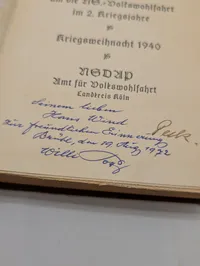 die NS.-Volkswohlfahrt
im 2. Kriegsjahre
Kriegsweihnacht 1940
NSDAP
Amt für Volkswohlfahrt
Landkreis Köln
Seinem lieben
Hans Wind
zur freundlichen Erinnerung
Brühl, den 19. Aug. 1972
Willi